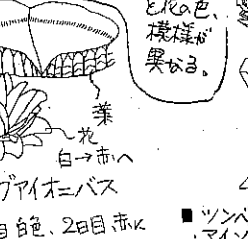 と花の色、
模様が
異なる。
葉
花
白→赤へ
ヴァイオニバス
白色、2日目、赤に
■ ツンベ